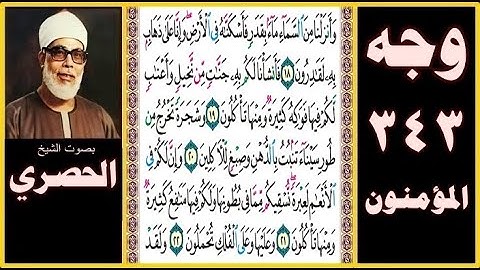 وجه
٣٤٣
المؤمنون
وَأَنزَلْنَا مِنَ السَّمَاءِ مَاءً بِقَدَرٍ فَأَسْكَنَّاهُ فِي الْأَرْضِ وَإِنَّا عَلَىٰ ذَهَابٍ
بِهِ لَقَادِرُونَ ١٨ فَأَنشَأْنَا لَكُم بِهِ جَنَّاتٍ مِّن نَّخِيلٍ وَأَعْنَابٍ
لَّكُمْ فِيهَا فَوَاكِهُ كَثِيرَةٌ وَمِنْهَا تَأْكُلُونَ ١٩ وَشَجَرَةً تَخْرُجُ مِن
طُورِ سَيْنَاءَ تَنبُتُ بِالدُّهْنِ وَصِبْغٍ لِّلْآكِلِينَ ٢٠ وَإِنَّ لَكُمْ فِي
الْأَنْعَامِ لَعِبْرَةً نُّسْقِيكُم مِّمَّا فِي بُطُونِهَا وَلَكُمْ فِيهَا مَنَافِعُ كَثِيرَةٌ
وَمِنْهَا تَأْكُلُونَ ٢١ وَعَلَيْهَا وَعَلَى الْفُلْكِ تُحْمَلُونَ ٢٢ وَلَقَدْ
بصوت الشيخ
الحصري